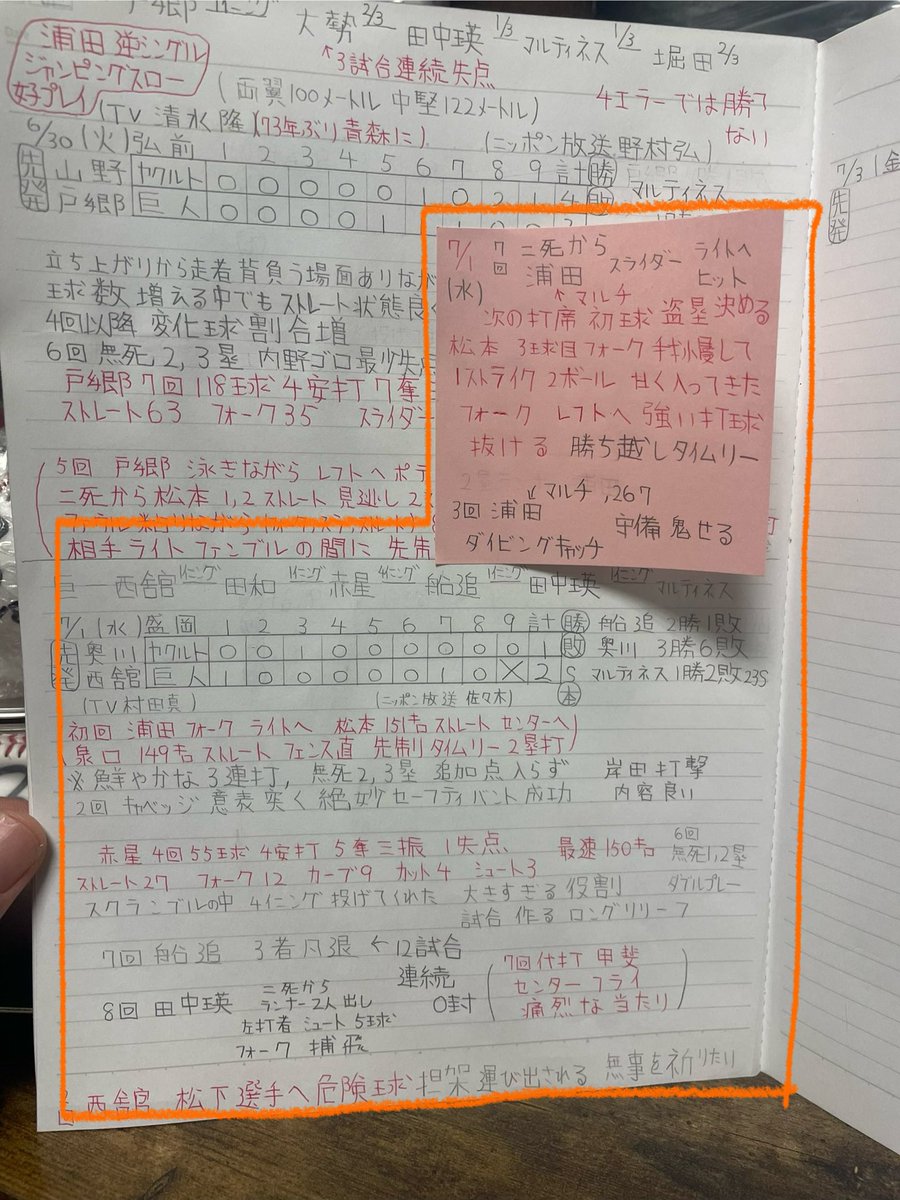 戸郷
大勢 2/3 田中瑛 1/3 マルティネス 1/3 堀田 2/3
↖3試合連続失点
浦田 逆シングル
ジャンピングスロー
好プレイ
(両翼100メートル 中堅122メートル)
4エラーでは勝て
ない
(TV 清水隆)(73年ぶり青森に)
(ニッポン放送 野村弘)
6/30 (火) 弘前 1 2 3 4 5 6 7 8 9 計 勝
先発 山野 ヤクルト 0 0 0 0 0 1 0 2 1 4 敗 マルティネス
戸郷 巨人 0 0 0 0 1
立ち上がりから走者背負う場面ありなが
球数 増える中でも ストレート 状態良く
4回以降 変化球 割合増
6回 無死2,3塁 内野ゴロ最少失点
戸郷 7回 118球 4安打 7奪
ストレート63 フォーク35 スライダー
5回 戸郷 泳ぎながら レフトへ ポテ
二死から松本 1,2 ストレート 見逃し 2
相手ライト ファンブルの間に 先制
7/1 (水) 7回 二死から
浦田 スライダー ライトへ
ヒット
↖マルチ
次の打席 初球 盗塁 決める
松本 3球目フォーク 我慢して
1ストライク 2ボール 甘く入ってきた
フォーク レフトへ 強い打球
抜ける 勝ち越しタイムリー
↙マルチ .267
3回 浦田 守備 魅せる
ダイビングキャッチ
巨ー 西舘 1イニング 田和 1イニング 赤星 4イニング 船迫 1イニング 田中瑛 1イニング マルティネス
7/1 (水) 盛岡 1 2 3 4 5 6 7 8 9 計 勝 船迫 2勝1敗
先発 奥川 ヤクルト 0 0 1 0 0 0 0 0 0 1 敗 奥川 3勝6敗
西舘 巨人 1 0 0 0 0 0 1 0 X 2 S マルティネス 1勝2敗23S
本
(TV 村田真) (ニッポン放送 佐々木)
初回 浦田 フォーク ライトへ 松本 151キロ ストレート センターへ
泉口 149キロ ストレート フェンス直 先制タイムリー2塁打
※鮮やかな3連打, 無死2,3塁 追加点入らず 岸田 打撃
2回 キャベッジ 意表突く 絶妙 セーフティバント成功 内容良い
赤星 4回 55球 4安打 5奪三振 1失点 最速150キロ
6回
無死1,2塁
ダブルプレー
ストレート27 フォーク12 カーブ9 カット4 シュート3
スクランブルの中 4イニング 投げてくれた 大きすぎる役割
試合 作る ロングリリーフ
7回 船迫 3者凡退 ←12試合
連続
0封
(7回代打 甲斐
センターフライ
痛烈な当たり)
8回 田中瑛 二死から
ランナー2人出し
左打者 シュート 5球
フォーク 捕飛
西舘 松下選手へ危険球 担架 運び出される 無事を祈りたい
7/3 (金
先発